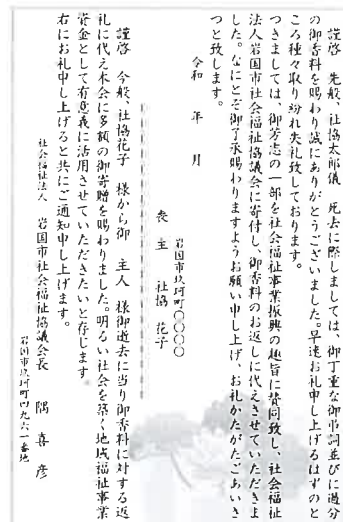 謹啓　先般、社協太郎儀　死去に際しましては、御丁重な御弔詞並びに過分
の御香料を賜わり誠にありがとうございました。早速お礼申し上げるはずのと
ころ種々取り紛れ失礼致しております。
つきましては、御芳志の一部を社会福祉事業振興の趣旨に賛同致し、社会福祉
法人岩国市社会福祉協議会に寄付し、御香料のお返しに代えさせていただきま
した。なにとぞ御了承賜わりますようお願い申し上げ、お礼かたがたごあいさ
つと致します。
令和　年　月
岩国市玖珂町〇〇〇〇
喪主　社協　花子
謹啓　今般、社協花子　様から御　主人　様御逝去に当り御香料に対する返
礼に代え本会に多額の御寄贈を賜わりました。明るい社会を築く地域福祉事業
資金として有意義に活用させていただきたいと存じます。
右にお礼申し上げると共にご通知申し上げます。
社会福祉法人　岩国市社会福祉協議会長　隅　喜彦
岩国市玖珂町四九六一番地